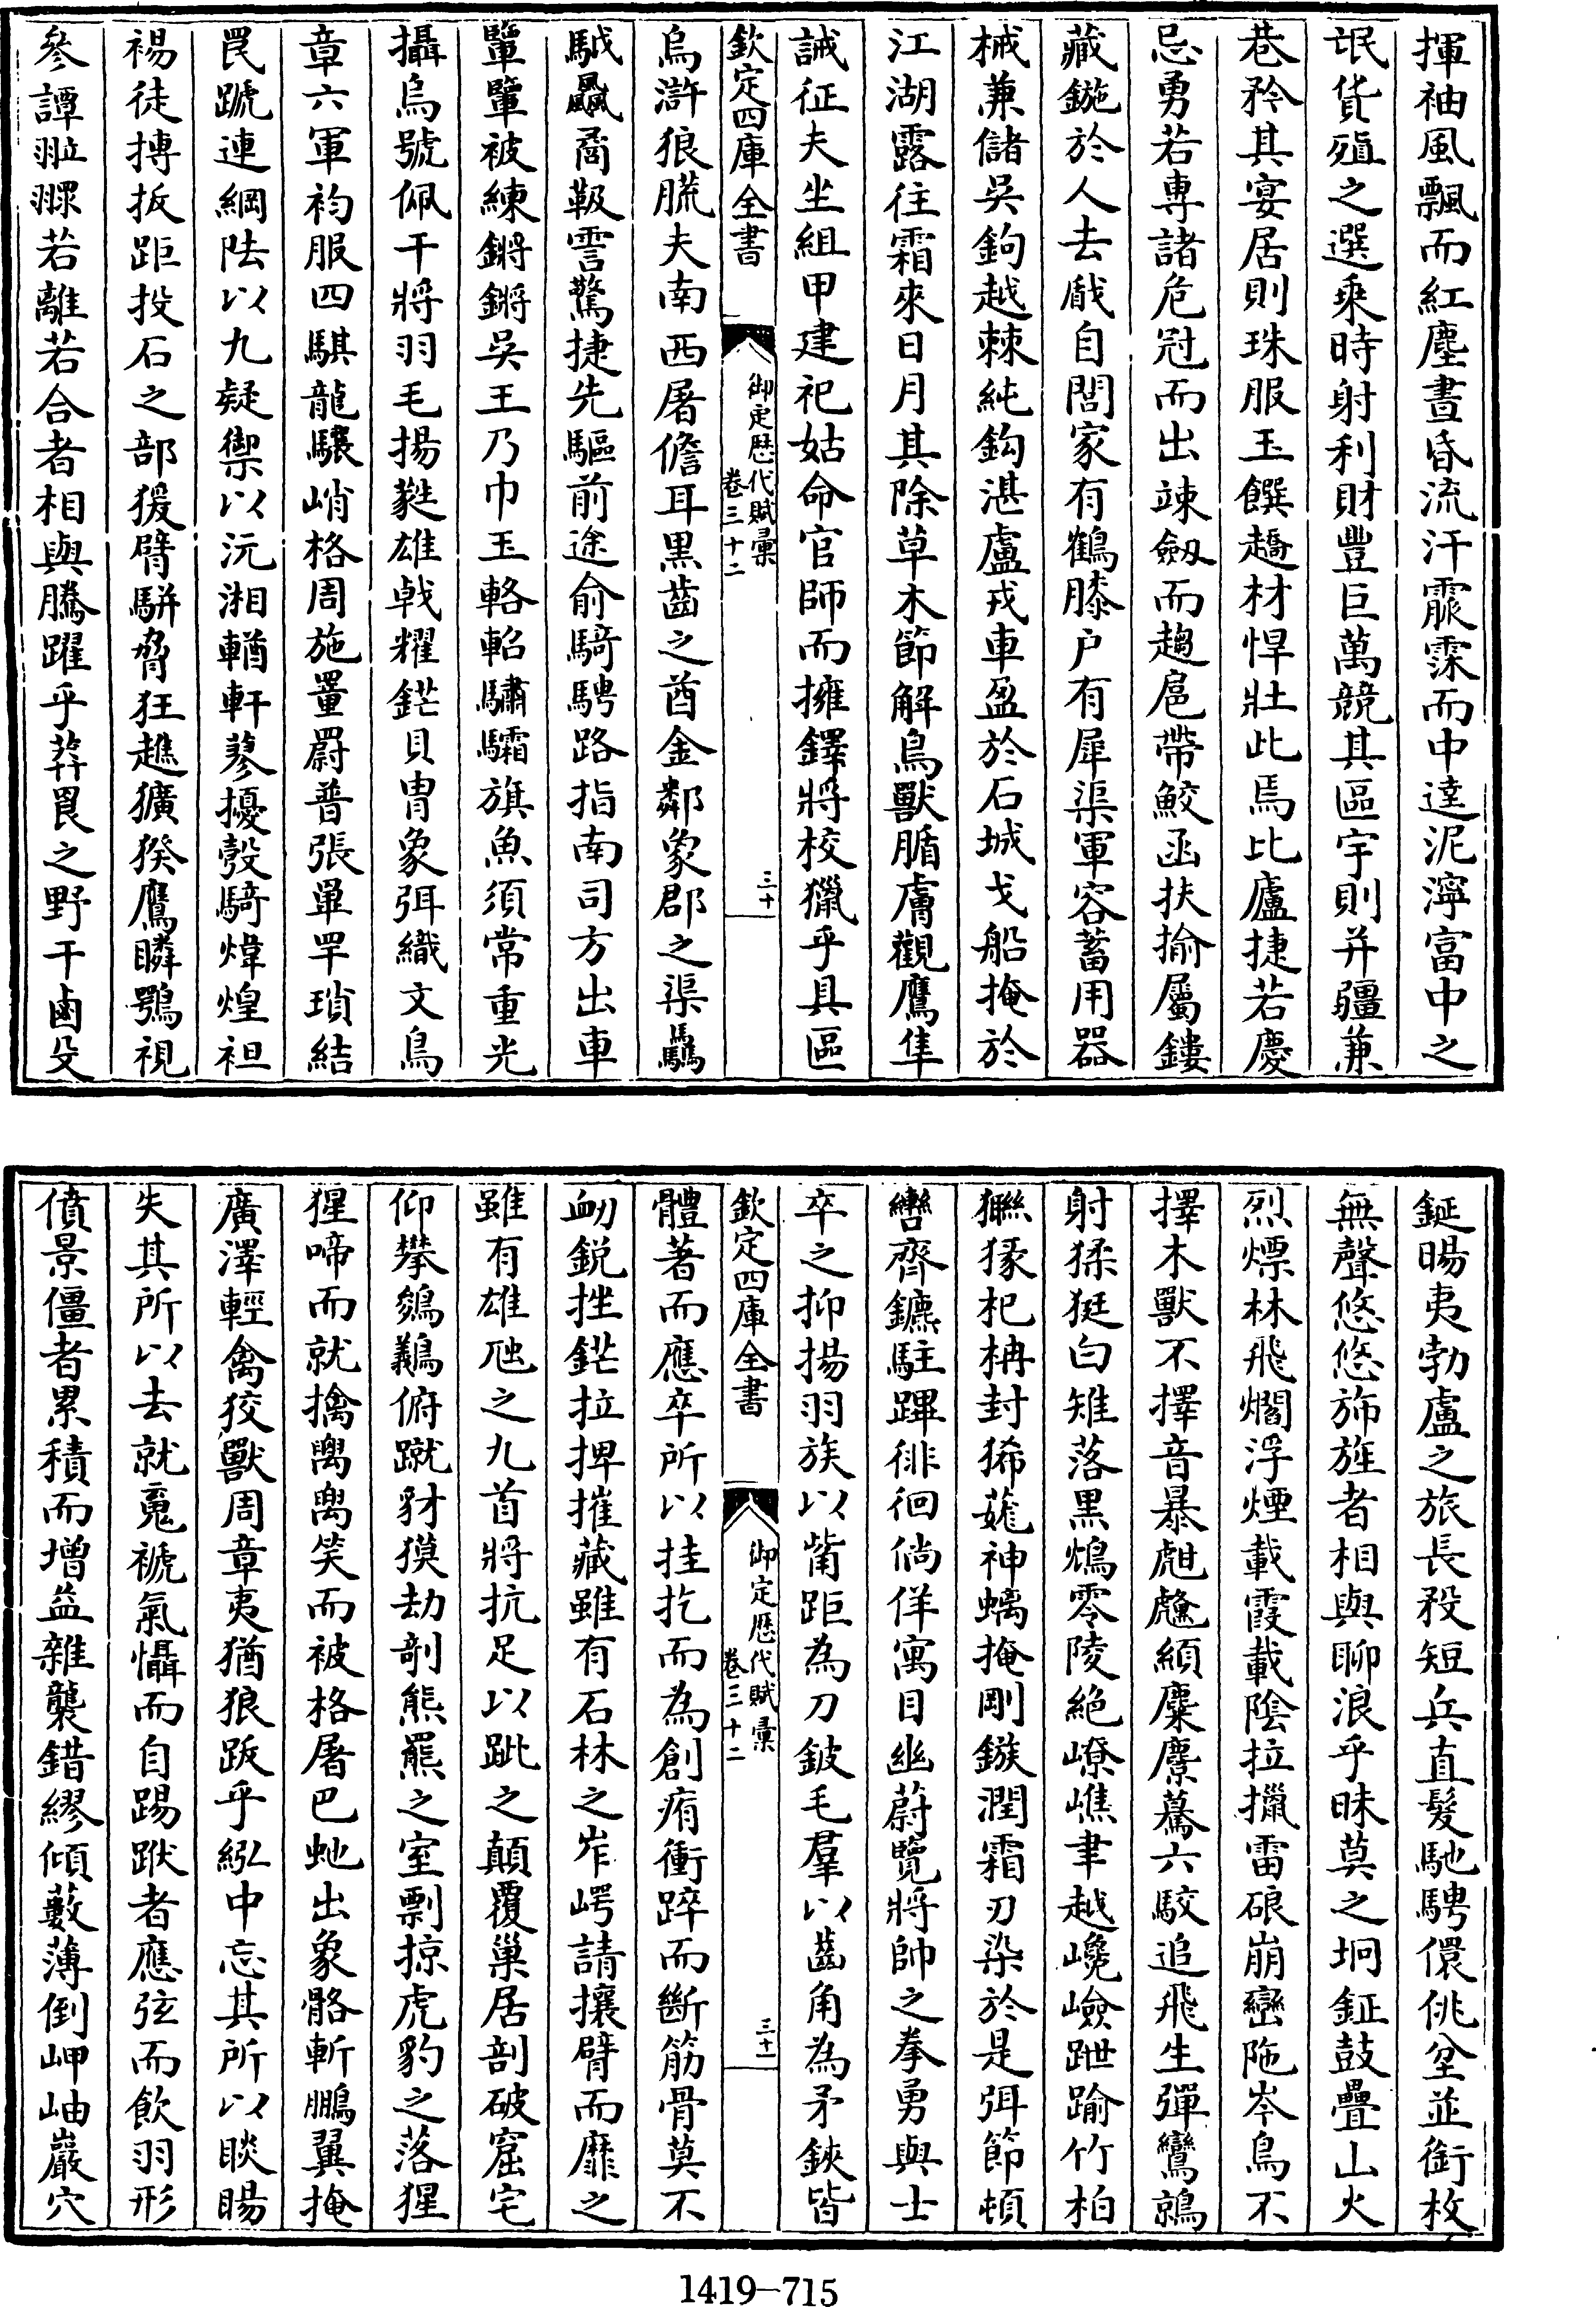 揮袖風飄而紅塵晝昏流汗霡霂而中逵泥濘富中之
氓貨殖之選乘時射利財豐巨萬競其區宇則并疆兼
巷矜其宴居則珠服玉饌趫材悍壯此焉比廬捷若慶
忌勇若專諸危冠而出竦劒而趨扈帶鮫函扶揄屬鏤
藏鍦於人去𢧕自閭家有鶴膝户有犀渠軍容蓄用器
械兼儲吳鉤越棘純鈎湛盧戎車盈於石城戈船掩於
江湖露往霜來日月其除草木節解鳥獸腯膚觀鷹隼
誡征夫坐組甲建祀姑命官師而擁鐸將校獵乎具區
欽定四庫全書
御定歴代賦彙
卷三十二
三十
烏滸狼㬻夫南西屠儋耳黒齒之酋金鄰象郡之渠驫
䮁飍矞靸霅驚捷先驅前途俞騎騁路指南司方出車
檻檻被練鏘鏘吳王乃巾玉輅軺驌驦旗魚須常重光
攝烏號佩干將羽毛揚蕤雄戟耀鋩貝胄象弭織文鳥
章六軍袀服四騏龍驤峭格周施罿罻普張罼罕瑣結
罠蹏連綱阹以九疑禦以沅湘輶軒蓼擾彀騎煒煌袒
裼徒搏拔距投石之部猨臂駢脅狂趭獷猤鷹瞵鶚視
參譚翋𦒢若離若合者相與騰躍乎莽罠之野干鹵殳
鋋暘夷勃盧之旅長殺短兵直髮馳騁儇佻坌並銜枚
無聲悠悠斾旌者相與聊浪乎昧莫之坰鉦鼓疊山火
烈熛林飛爓浮煙載霞載陰拉擸雷硠崩巒陁岑鳥不
擇木獸不擇音暴甝虪䫟麋麖驀六駮追飛生彈鸞鵁
射猱挺白雉落黒鴆零陵絶嶛嶕聿越巉嶮跇踰竹柏
獮猭杞柟封豨蓶神螭掩剛鏃潤霜刃染於是弭節頓
轡齊鑣駐蹕徘徊倘佯寓目幽蔚覽將帥之拳勇與士
卒之抑揚羽族以觜距為刀鈹毛羣以齒角為矛鋏皆
欽定四庫全書
御定歴代賦彙
卷三十二
三十一
體著而應卒所以挂扢而為創痏衝踤而斷筋骨莫不
衂鋭挫鋩拉捭摧藏雖有石林之岝崿請攘臂而靡之
雖有雄虺之九首將抗足以跐之顛覆巢居剖破窟宅
仰攀鵕鸃俯蹴豺獏劫剞熊羆之室剽掠虎豹之落猩
猩啼而就擒𤡓𤡓笑而被格屠巴虵出象骼斬鵬翼掩
廣澤輕禽狡獸周章夷猶狼跋乎紭中忘其所以睒暘
失其所以去就䰟褫氣懾而自踢䟮者應弦而飲羽形
僨景僵者累積而增益雜襲錯繆傾藪薄倒岬岫巖穴
1419-715